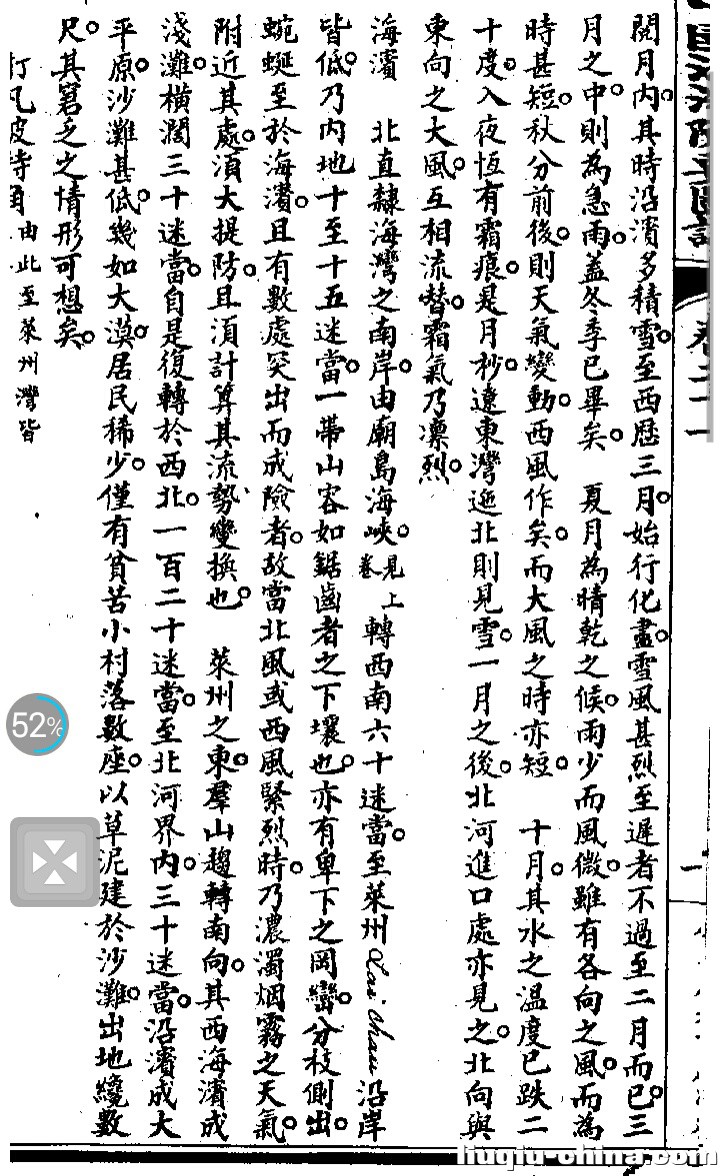 閱月內。其時沿濱多積雪。至西歷三月。始行化盡。雪風甚烈。至遲者不過至二月而已。三
月之中。則為急雨。蓋冬季已畢矣。 夏月為晴乾之候。雨少而風微。雖有各向之風。而為
時甚短。秋分前後。則天氣變動。西風作矣。而大風之時亦短。 十月。其水之溫度已跌二
十度。入夜恆有霜痕。是月杪。遼東灣迤北則見雪。一月之後。北河進口處亦見之。北向與
東向之大風。互相流替。霜氣乃凛烈。
海濱 北直隸海灣之南岸。由廟島海峽。見上卷轉西南六十迷當。至萊州Lai-Chau沿岸
皆低。乃內地十至十五迷當。一帶山容如鋸齒者之下壤也。亦有卑下之岡巒。分枝側出。
蜿蜒至於海濱。且有數處突出而成險者。故當北風或西風緊烈時。乃濃濁烟霧之天氣。
附近其處。須大提防。且須計算其流勢變換也。 萊州之東。羣山趨轉南向。其西海濱成
淺灘。橫濶三十迷當。自是復轉於西北。一百二十迷當。至北河界內。三十迷當。沿濱成大
平原。沙灘甚低。幾如大漠。居民稀少。僅有貧苦小村落數座。以草泥建於沙灘。出地纔數
尺。其窘乏之情形可想矣。
打凡波特角 由此至萊州灣皆
卷二十一
52%
liuqiu-china.com